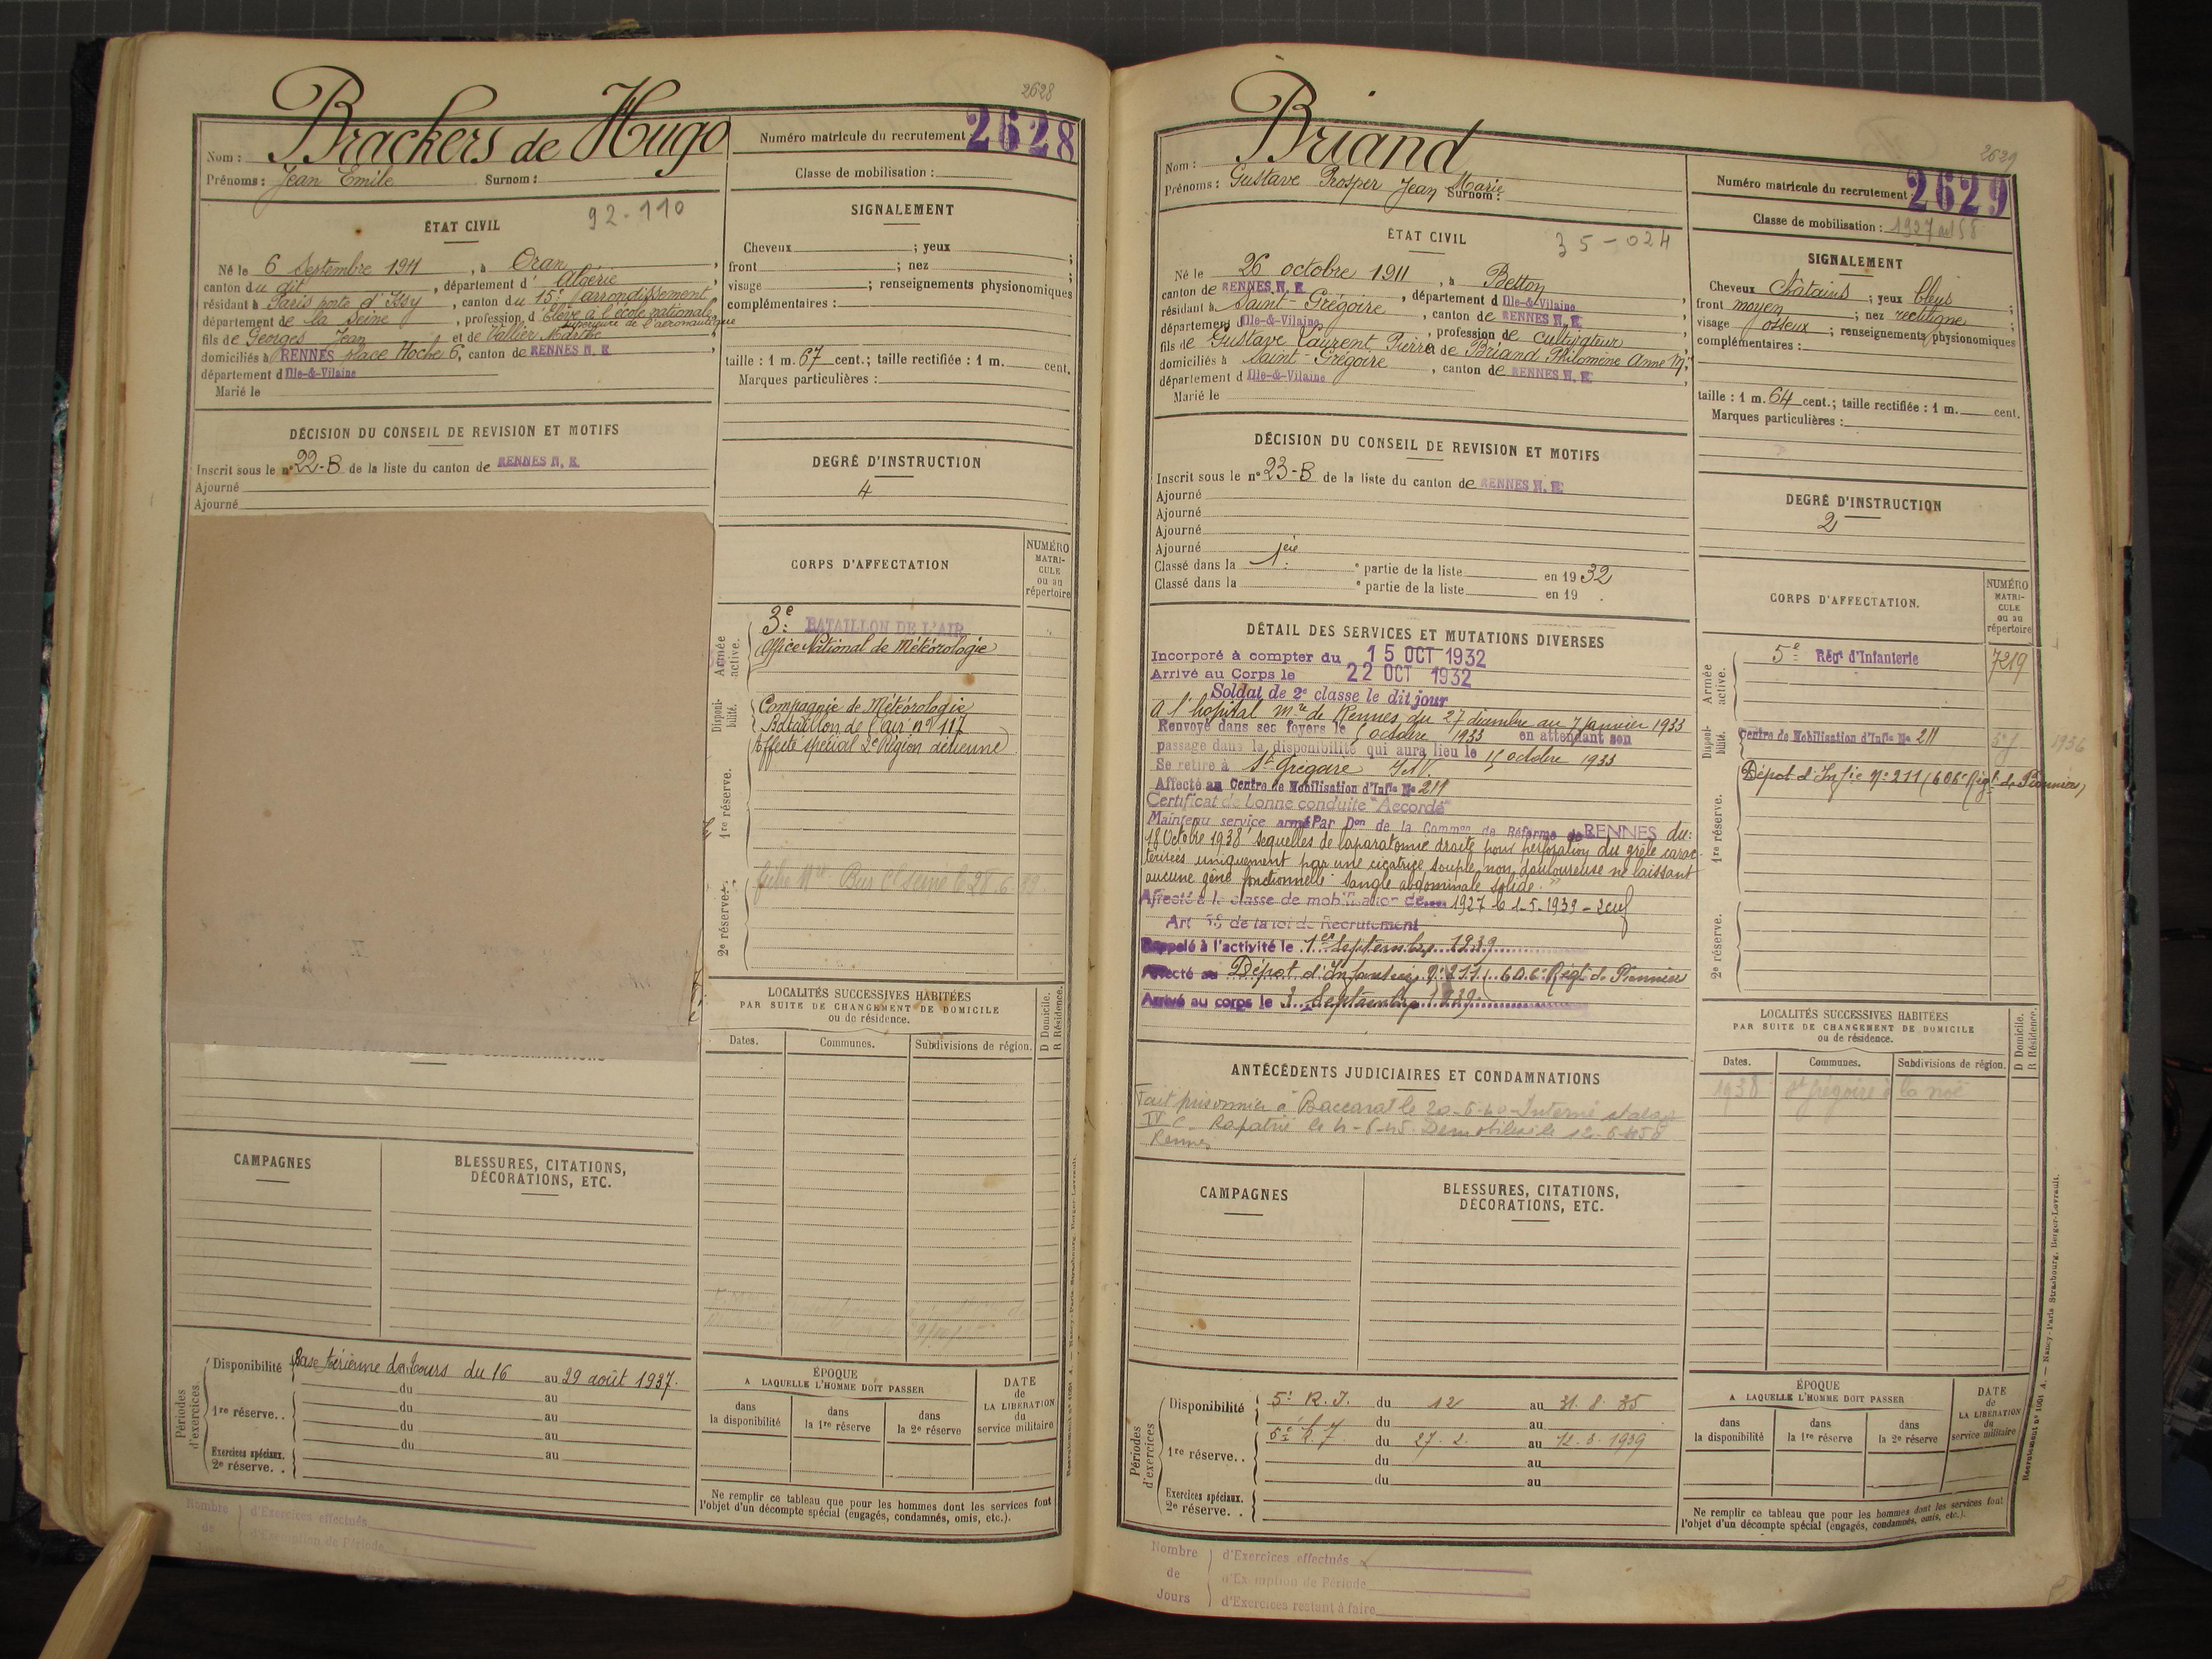 2628
Brackers de Hugo
Nom :
Prénoms : Jean Emile Surnom :
Numéro matricule du recrutement 2628
Classe de mobilisation :
ÉTAT CIVIL 92-110
Né le 6 Septembre 1911, à Oran,
canton du dit, département d' Algérie
résidant à Paris porte d'Issy, canton du 15e arrondissement
département de la Seine, profession d' Elève à l'école nationale
supérieure de l'aéronautique
fils de Georges Jean et de Vallier Marthe
domiciliés à RENNES place Hoche 6, canton de RENNES N. E.
département d Ille-&-Vilaine
Marié le
SIGNALEMENT
Cheveux ; yeux ;
front ; nez ;
visage ; renseignements physionomiques
complémentaires :
taille : 1 m. 67 cent.; taille rectifiée : 1 m. cent.
Marques particulières :
DÉCISION DU CONSEIL DE REVISION ET MOTIFS
Inscrit sous le n° 22-B de la liste du canton de RENNES N. E.
Ajourné
Ajourné
DEGRÉ D'INSTRUCTION
4
CORPS D'AFFECTATION
NUMÉRO
MATRI-
CULE
ou au
répertoire
Armée active.
3e BATAILLON DE L'AIR
Office National de Météorologie
Disponi-bilité.
Compagnie de Météorologie
Bataillon de l'air n° 117
Affecté spécial 2e Région aérienne
1re réserve.
2e réserve.
LOCALITÉS SUCCESSIVES HABITÉES
PAR SUITE DE CHANGEMENT DE DOMICILE
ou de résidence.
Dates. Communes. Subdivisions de région. D Domicile. R Résidence.
CAMPAGNES
BLESSURES, CITATIONS,
DÉCORATIONS, ETC.
Périodes d'exercices.
Disponibilité Base Aérienne de Tours du 16 au 29 août 1937.
du au
1re réserve.. du au
du au
du au
Exercices spéciaux.
2e réserve. .
ÉPOQUE
A LAQUELLE L'HOMME DOIT PASSER
dans la disponibilité
dans la 1re réserve
dans la 2e réserve
DATE
de
LA LIBÉRATION
du
service militaire
Ne remplir ce tableau que pour les hommes dont les services font
l'objet d'un décompte spécial (engagés, condamnés, omis, etc.).
Nombre de
d'Exercices effectués
d'Exemption de Période
2629
Briand
Nom :
Prénoms : Gustave Prosper Jean Marie Surnom :
Numéro matricule du recrutement 2629
Classe de mobilisation : 1927
ÉTAT CIVIL 35-024
Né le 26 octobre 1911, à Betton,
canton de RENNES N. E., département d Ille-&-Vilaine
résidant à Saint-Grégoire, canton de RENNES N. E.
département d Ille-&-Vilaine, profession de cultivateur
fils de Gustave Laurent Pierre de Briand Philomène Anne Mie
domiciliés à Saint-Grégoire, canton de RENNES N. E.
département d Ille-&-Vilaine
Marié le
SIGNALEMENT
Cheveux châtains ; yeux bleus ;
front moyen ; nez rectiligne ;
visage osseux ; renseignements physionomiques
complémentaires :
taille : 1 m. 64 cent.; taille rectifiée : 1 m. cent.
Marques particulières :
DÉCISION DU CONSEIL DE REVISION ET MOTIFS
Inscrit sous le n° 23-B de la liste du canton de RENNES N. E.
Ajourné
Ajourné
Ajourné
Ajourné
Classé dans la 1ère partie de la liste en 1932
Classé dans la e partie de la liste en 19 .
DEGRÉ D'INSTRUCTION
2
DÉTAIL DES SERVICES ET MUTATIONS DIVERSES
Incorporé à compter du 15 OCT 1932
Arrivé au Corps le 22 OCT 1932
Soldat de 2e classe le dit jour
A l'hopital mre de Rennes du 27 décembre au 7 janvier 1933
Renvoyé dans ses foyers le octobre 1933 en attendant son
passage dans la disponibilité qui aura lieu le 15 octobre 1933
Se retire à St Grégoire I&V
Affecté au Centre de Mobilisation d'Infie No 211
Certificat de bonne conduite "Accordé"
Maintenu service armé Par Don de la Common de Réforme de RENNES du:
18 Octobre 1938 "sequelles de laparatomie droite pour perforation du grêle carac-
térisées uniquement par une cicatrice souple non douloureuse ne laissant
aucune gêne fonctionnelle - Sangle abdominale solide."
Affecté à la classe de mobilisation de 1927 le 1-5-1939
Art 58 de la loi de Recrutement
Rappelé à l'activité le 1er Septembre 1939
Affecté au Dépôt d'Infanterie No 211 (606e Régt de Pionniers
Arrivé au corps le 3 Septembre 1939.
CORPS D'AFFECTATION.
NUMÉRO
MATRI-
CULE
ou au
répertoire
Armée active.
5e Régt d'Infanterie 7219
Disponi-bilité.
Centre de Mobilisation d'Infie No 211 1936
Dépôt d'Infie No 211 (606e Régt de Pionniers)
1re réserve.
2e réserve.
ANTÉCÉDENTS JUDICIAIRES ET CONDAMNATIONS
Fait prisonnier à Baccarat le 20-6-40 - Interné stalag
IV C - Rapatrié le 4-6-45. Démobilisé le 12-6-45 à
Rennes
LOCALITÉS SUCCESSIVES HABITÉES
PAR SUITE DE CHANGEMENT DE DOMICILE
ou de résidence.
Dates. Communes. Subdivisions de région. D Domicile. R Résidence.
1938 St Grégoire à la noë
CAMPAGNES
BLESSURES, CITATIONS,
DÉCORATIONS, ETC.
Périodes d'exercices
Disponibilité 5e R.I. du 12 au 31.8.35
du au
1re réserve.. 5e R.I. du 27.2. au 12.3.1939
du au
du au
Exercices spéciaux.
2e réserve. .
ÉPOQUE
A LAQUELLE L'HOMME DOIT PASSER
dans la disponibilité
dans la 1re réserve
dans la 2e réserve
DATE
de
LA LIBÉRATION
du
service militaire
Ne remplir ce tableau que pour les hommes dont les services font
l'objet d'un décompte spécial (engagés, condamnés, omis, etc.).
Recrutement n° 1061 A. — Nancy-Paris Strasbourg, Berger-Levrault.
Nombre de Jours
d'Exercices effectués
d'Exemption de Période
d'Exercices restant à faire